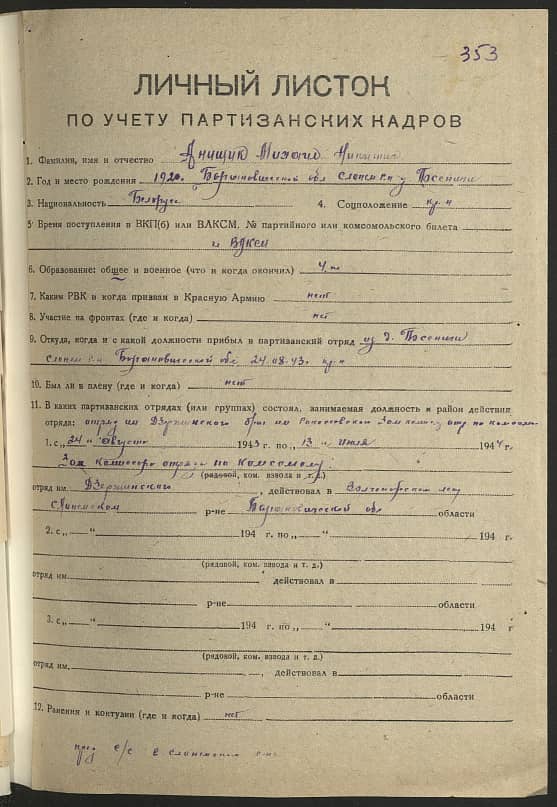 353
ЛИЧНЫЙ ЛИСТОК
ПО УЧЕТУ ПАРТИЗАНСКИХ КАДРОВ
1. Фамилия, имя и отчество Анищик Михаил
2. Год и место рождения 1920. Барановичской обл
3. Национальность Белорус 4. Соцположение кр-н
5. Время поступления в ВКП(б) или ВЛКСМ, № партийного или комсомольского билета
ВЛКСМ
6. Образование: общее и военное (что и когда окончил)
7. Каким РВК и когда призван в Красную Армию нет
8. Участие на фронтах (где и когда) нет
9. Откуда, когда и с какой должности прибыл в партизанский отряд из д.
Барановичской обл 24.08.43. кр-н
10. Был ли в плену (где и когда) нет
11. В каких партизанских отрядах (или группах) состоял, занимаемая должность и район действия
отряда: отряд им Дзержинского
1. с „24" августа 1943 г. по „13" июля 1944 г.
Зам комиссара отряда по комсомолу
(рядовой, ком. взвода и т. д.)
отряд им Дзержинского, действовал в
Слонимском р-не Барановичской обл области
2. с „ " 194 г. по „ " 194 г.
(рядовой, ком. взвода и т. д.)
отряд им. , действовал в
р-не области
3. с „ " 194 г. по „ " 194 г
(рядовой, ком. взвода и т. д.)
отряд им. , действовал в
р-не области
12. Ранения и контузии (где и когда) нет
пред с/с